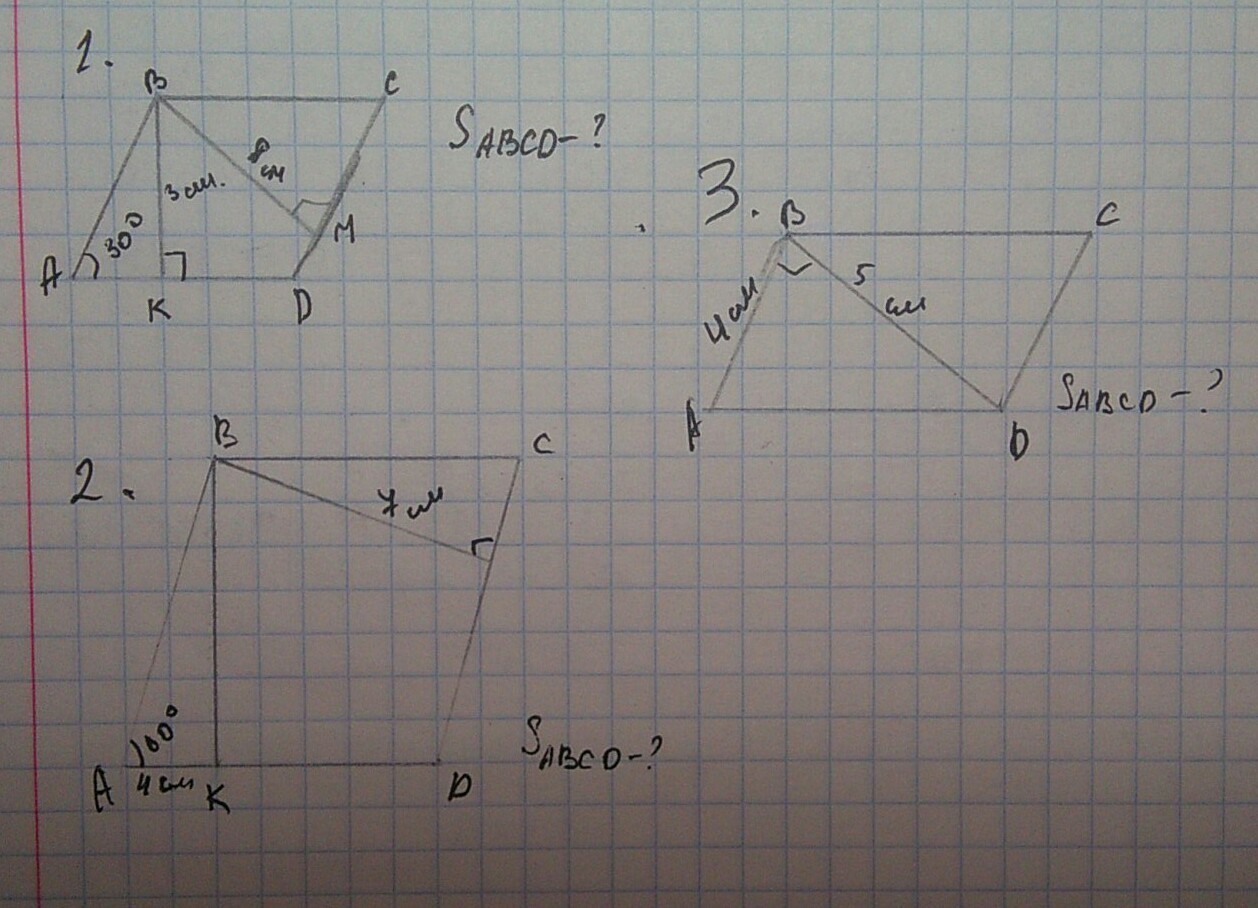 1.
B C
8 см
3 см.
30°
M
A K D
S ABCD - ?
3.
B C
4 см
5 см
A D
S ABCD - ?
2.
B C
7 см
60°
A 4 см K D
S ABCD - ?